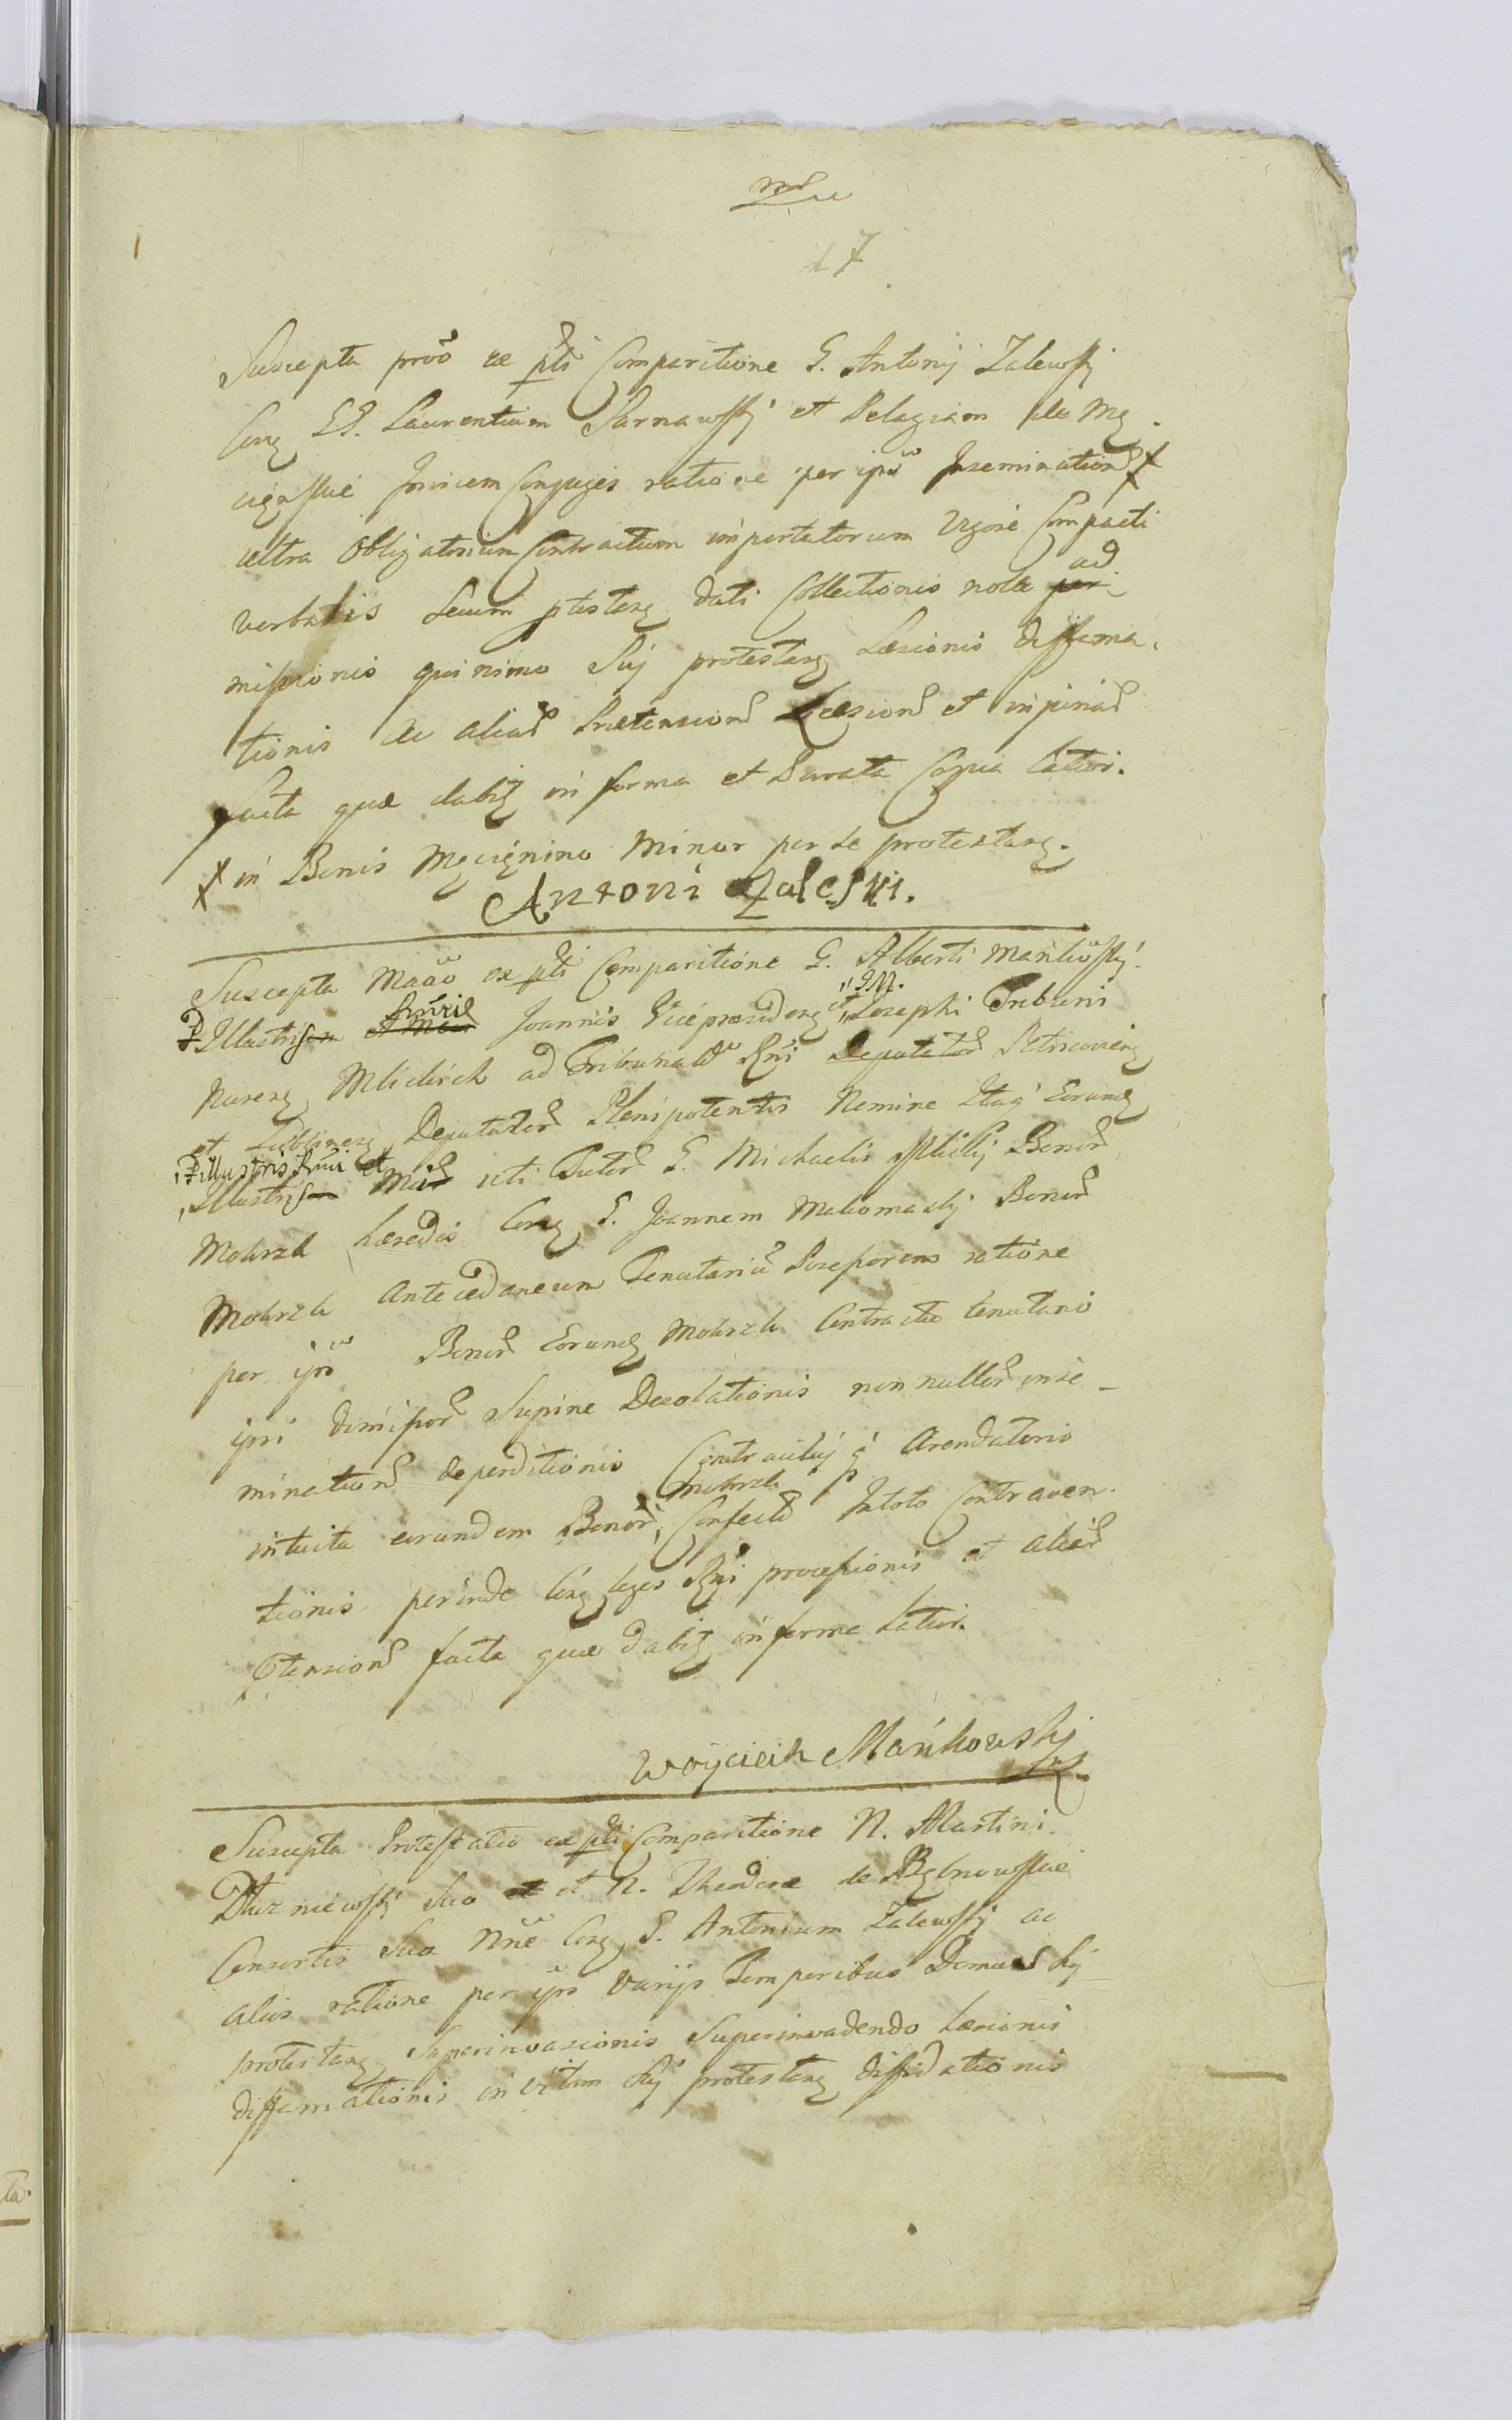 17
Suscepta prõo ex pti Comparitione G. Antonij Zalewskj
Cong GG. Laurentium Sarnawskj et Pelagiam de Mę-
cięnskie Invicem Conjuges ratione per ipos Inseminationũ ×
ultra Obligatorium Contractum importatorum Vigore Compacti
verbalis Secum ptestang dati Collectionis nolæ per ad
missionis quinimo Suj protestang Læsionis diffama-
tionis ac aliarũ Prætensionũ Læsionũ et injuriarũ
facta quæ dabig in forma et Parata Copia latior.
× in Bonis Męcięnino Minor per Se protestang.
Antoni Zaleski.
Suscepta Maão ex pti Comparitione G. Alberti Mankowskj
Illustrism Joannis Viceprasideng et GM. Josephi Tribuni
Nureng Mlickich ad Tribunal Rgni Deputator Petricovieng
et Lublineng Deputatorũ Plenipotentis Nomine Itaq Eorung
Illustris Rgni et
Illustrism Mcir uti Tutorũ G. Michaelis Mlickij Bonorũ
Mokrzk hæredis Cong G. Joannem Makomaskj Bonorũ
Mokrzk Antecedaneum Tenutariũ Possessorem ratione
per ipos Bonorũ Eorung Mokrzk Contractu tenutario
ipsi dimissorũ Supine Desolationis nonnullorũ inse-
minationũ deperditionis Contractuj Arendatorio
intuitu eorundem Bonorũ, Mokrzk Confecto Intoto Contraven-
tionis perinde Cong leges Rgni processionis et aliarũ
Ptensionũ facta quæ dabig in forma latior.
Woyciech Mańkowskj
Suscepta Protestatio ex pti Comparitione N. Martini
Dłuzniewskj Suo et et N. Theodoræ de Bębnowskie
Consortis Suæ Nñe Cong G. Antonium Zalewskj ac
alios ratione per ipos varijs Temporibus Domus Suj
protestang Superinvasionis Superinvadendo Læsionis
diffamationis in vitam Suj protestang diffidationis